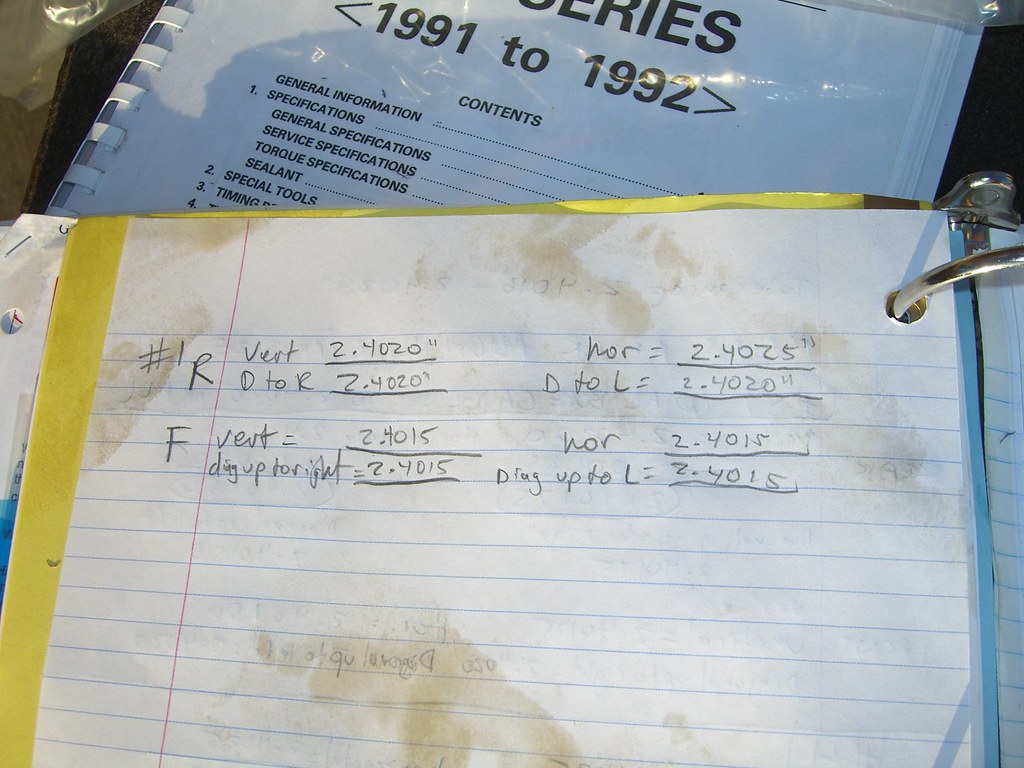 SERIES
<1991 to 1992>
CONTENTS
GENERAL INFORMATION
1. SPECIFICATIONS
GENERAL SPECIFICATIONS
SERVICE SPECIFICATIONS
TORQUE SPECIFICATIONS
SEALANT
2. SPECIAL TOOLS
3. TIMING
4.
#1 R vert 2.4020" hor = 2.4025"
D to R 2.4020" D to L = 2.4020"
F vert = 2.4015 hor 2.4015
diag up to right = 2.4015 Diag up to L = 2.4015